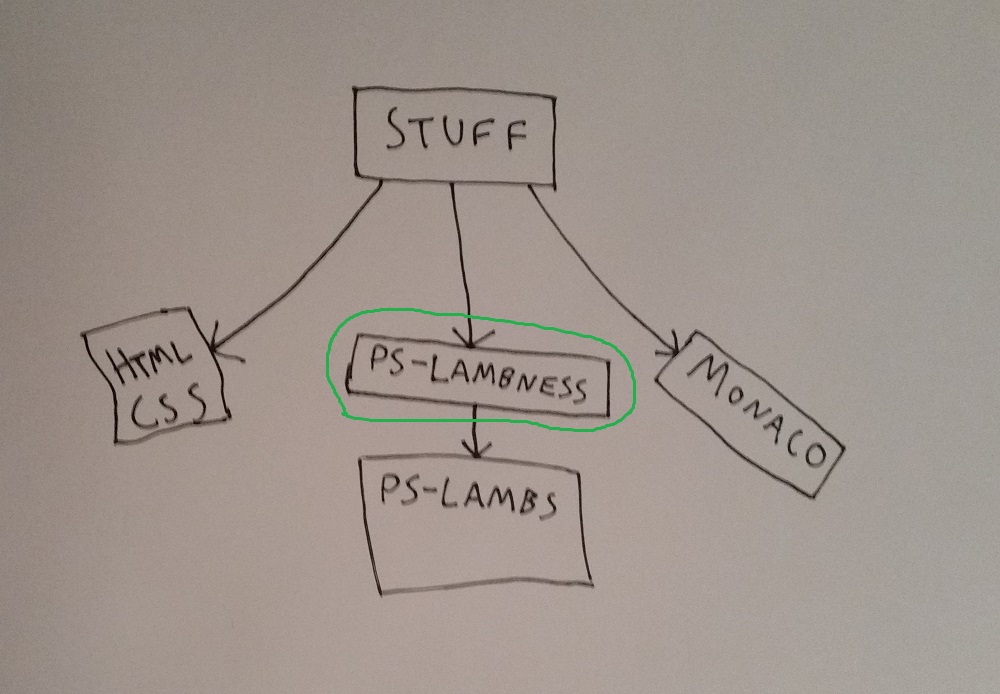 STUFF
HTML
CSS
PS-LAMBNESS
MONACO
PS-LAMBS